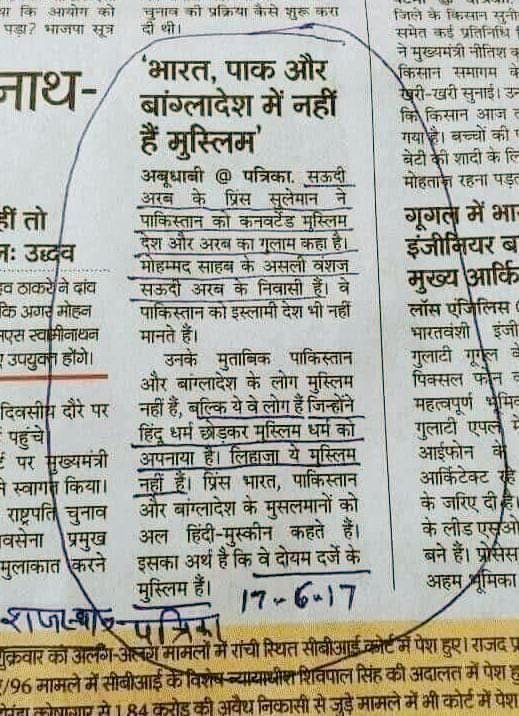 या कि आयोग को
पड़ा? भाजपा सूत्र
नाथ-
हीं तो
नः उद्धव
व ठाकरे ने दांव
कि अगर मोहन
एस स्वामीनाथन
उपयुक्त होंगे।
दिवसीय दौरे पर
पहुंचे
पर मुख्यमंत्री
ने स्वागत किया।
राष्ट्रपति चुनाव
वसेना प्रमुख
मुलाकात करने
चुनाव की प्रक्रिया कैसे शुरू करा
दी थी।
'भारत, पाक और
बांग्लादेश में नहीं
हैं मुस्लिम'
अबूधाबी @ पत्रिका. सऊदी
अरब के प्रिंस सुलेमान ने
पाकिस्तान को कनवर्टेड मुस्लिम
देश और अरब का गुलाम कहा है।
मोहम्मद साहब के असली वंशज
सऊदी अरब के निवासी हैं। वे
पाकिस्तान को इस्लामी देश भी नहीं
मानते हैं।
उनके मुताबिक पाकिस्तान
और बांग्लादेश के लोग मुस्लिम
नहीं हैं, बल्कि ये वे लोग हैं जिन्होंने
हिंदू धर्म छोड़कर मुस्लिम धर्म को
अपनाया है। लिहाजा ये मुस्लिम
नहीं हैं। प्रिंस भारत, पाकिस्तान
और बांग्लादेश के मुसलमानों को
अल हिंदी-मुस्कीन कहते हैं।
इसका अर्थ है कि वे दोयम दर्जे के
मुस्लिम हैं।
17-6-17
राजस्थान पत्रिका
जिले के किसान सुनी
समेत कई प्रतिनिधि
ने मुख्यमंत्री नीतिश
किसान समागम के
खरी-खरी सुनाई।
कि किसान आज
गया है। बच्चों की
बेटी की शादी के लि
मोहताज रहना पड़त
गूगल में भा
इंजीनियर ब
मुख्य आर्कि
लॉस एंजिलिस
भारतवंशी इंजी
गुलाटी गूगल के
पिक्सल फोन
महत्वपूर्ण भूमि
गुलाटी एपल में
आईफोन के
आर्किटेक्ट रहे
के जरिए दी है।
के लीड एसओ
बने हैं। प्रोसेस
अहम भूमिका
शुक्रवार को अलग-अलग मामलों में रांची स्थित सीबीआई कोर्ट में पेश हुए। राजद प्र
/96 मामले में सीबीआई के विशेष न्यायाधीश शिवपाल सिंह की अदालत में पेश हु
कोषागार से 1.84 करोड़ की अवैध निकासी से जुड़े मामले में भी कोर्ट में पेश